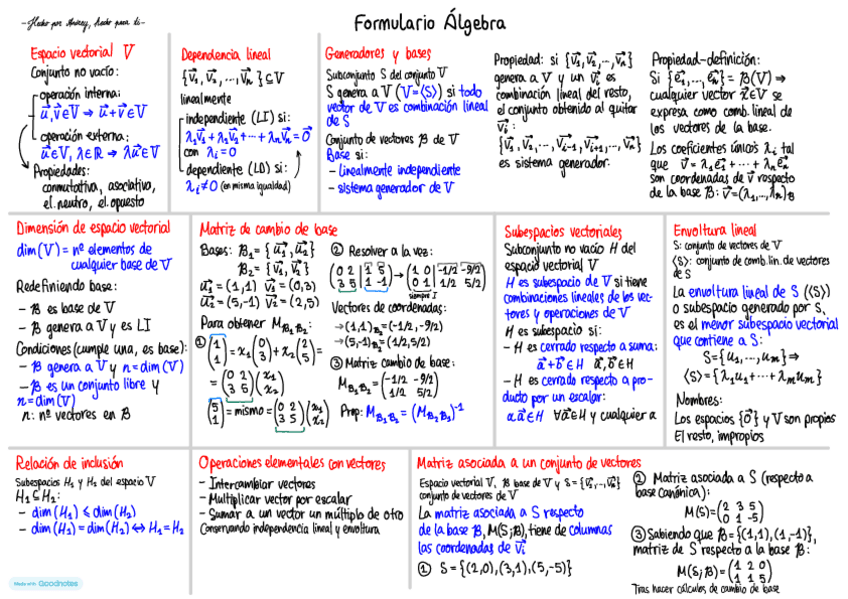 ~Hecho por Andrey, hecho para ti~
Formulario Álgebra
Espacio vectorial V
Conjunto no vacío:
operación interna:
u⃗,v⃗∈V ⇒ u⃗+v⃗∈V
operación externa:
u⃗∈V, λ∈ℝ ⇒ λu⃗∈V
Propiedades:
conmutativa, asociativa,
el neutro, el opuesto
Dependencia lineal
{v⃗₁, v⃗₂, ..., v⃗ₙ} ⊆ V
linealmente
independiente (LI) si:
λ₁v⃗₁ + λ₂v⃗₂ + ··· + λₙv⃗ₙ = 0⃗
con λᵢ = 0
dependiente (LD) si:
λᵢ ≠ 0 (en misma igualdad)
Generadores y bases
Subconjunto S del conjunto V
S genera a V (V=⟨S⟩) si todo
vector de V es combinación lineal
de S
Conjunto de vectores B de V
Base si:
- linealmente independiente
- sistema generador de V
Propiedad: si {v⃗₁, v⃗₂, ..., v⃗ₙ}
genera a V y un v⃗ᵢ es
combinación lineal del resto,
el conjunto obtenido al quitar
v⃗ᵢ:
{v⃗₁, v⃗₂, ..., v⃗ᵢ₋₁, v⃗ᵢ₊₁, ..., v⃗ₙ}
es sistema generador.
Propiedad-definición:
Si {e⃗₁, ..., e⃗ₙ} = B(V) ⇒
cualquier vector x⃗∈V se
expresa como comb. lineal de
los vectores de la base.
Los coeficientes únicos λᵢ tal
que v⃗ = λ₁e⃗₁ + ··· + λₙe⃗ₙ
son coordenadas de v⃗ respecto
de la base B: v⃗=(λ₁, ..., λₙ)_B
Dimensión de espacio vectorial
dim(V) = nº elementos de
cualquier base de V
Redefiniendo base:
- B es base de V
- B genera a V y es LI
Condiciones (cumple una, es base):
- B genera a V y n = dim(V)
- B es un conjunto libre y
n = dim(V)
n: nº vectores en B
Matriz de cambio de base
Bases: B₁ = {u⃗₁, u⃗₂}
B₂ = {v⃗₁, v⃗₂}
u⃗₁ = (1,1) v⃗₁ = (0,3)
u⃗₂ = (5,-1) v⃗₂ = (2,5)
Para obtener M_B₁B₂:
① (1 1) = x₁ (0 3) + x₂ (2 5) =
= (0 2 / 3 5) (x₁ x₂)
(5 1) = mismo = (0 2 / 3 5) (x₁ x₂)
② Resolver a la vez:
(0 2 | 1 5 / 3 5 | 1 -1) → (1 0 | -1/2 -9/2 / 0 1 | 1/2 5/2)
siempre I
Vectores de coordenadas:
→ (1,1)_B₂ = (-1/2, -9/2)
→ (5,-1)_B₂ = (1/2, 5/2)
③ Matriz cambio de base:
M_B₁B₂ = (-1/2 -9/2 / 1/2 5/2)
Prop: M_B₂B₁ = (M_B₁B₂)⁻¹
Subespacios vectoriales
Subconjunto no vacío H del
espacio vectorial V
H es subespacio de V si tiene
combinaciones lineales de los vec-
tores y operaciones de V
H es subespacio si:
- H es cerrado respecto a suma:
a⃗+b⃗∈H a⃗,b⃗∈H
- H es cerrado respecto a pro-
ducto por un escalar:
αa⃗∈H ∀a⃗∈H y cualquier α
Envoltura lineal
S: conjunto de vectores de V
⟨S⟩: conjunto de comb. lin. de vectores
de S
La envoltura lineal de S (⟨S⟩)
o subespacio generado por S,
es el menor subespacio vectorial
que contiene a S:
S = {u₁, ..., uₘ} ⇒
⟨S⟩ = {λ₁u₁ + ··· + λₘuₘ}
Nombres:
Los espacios {0⃗} y V son propios
El resto, impropios
Relación de inclusión
Subespacios H₁ y H₂ del espacio V
H₁ ⊆ H₂:
- dim(H₁) ≤ dim(H₂)
- dim(H₁) = dim(H₂) ⇔ H₁ = H₂
Operaciones elementales con vectores
- Intercambiar vectores
- Multiplicar vector por escalar
- Sumar a un vector un múltiplo de otro
Conservando independencia lineal y envoltura
Matriz asociada a un conjunto de vectores
Espacio vectorial V, B base de V y S = {v⃗₁, ..., v⃗ₙ}
conjunto de vectores de V
La matriz asociada a S respecto
de la base B, M(S;B), tiene de columnas
las coordenadas de v⃗ᵢ
① S = {(2,0), (3,1), (5,-5)}
② Matriz asociada a S (respecto a
base canónica):
M(S) = (2 3 5 / 0 1 -5)
③ Sabiendo que B = {(1,1), (1,-1)},
matriz de S respecto a la base B:
M(S;B) = (1 2 0 / 1 1 5)
Tras hacer cálculos de cambio de base
Made with Goodnotes